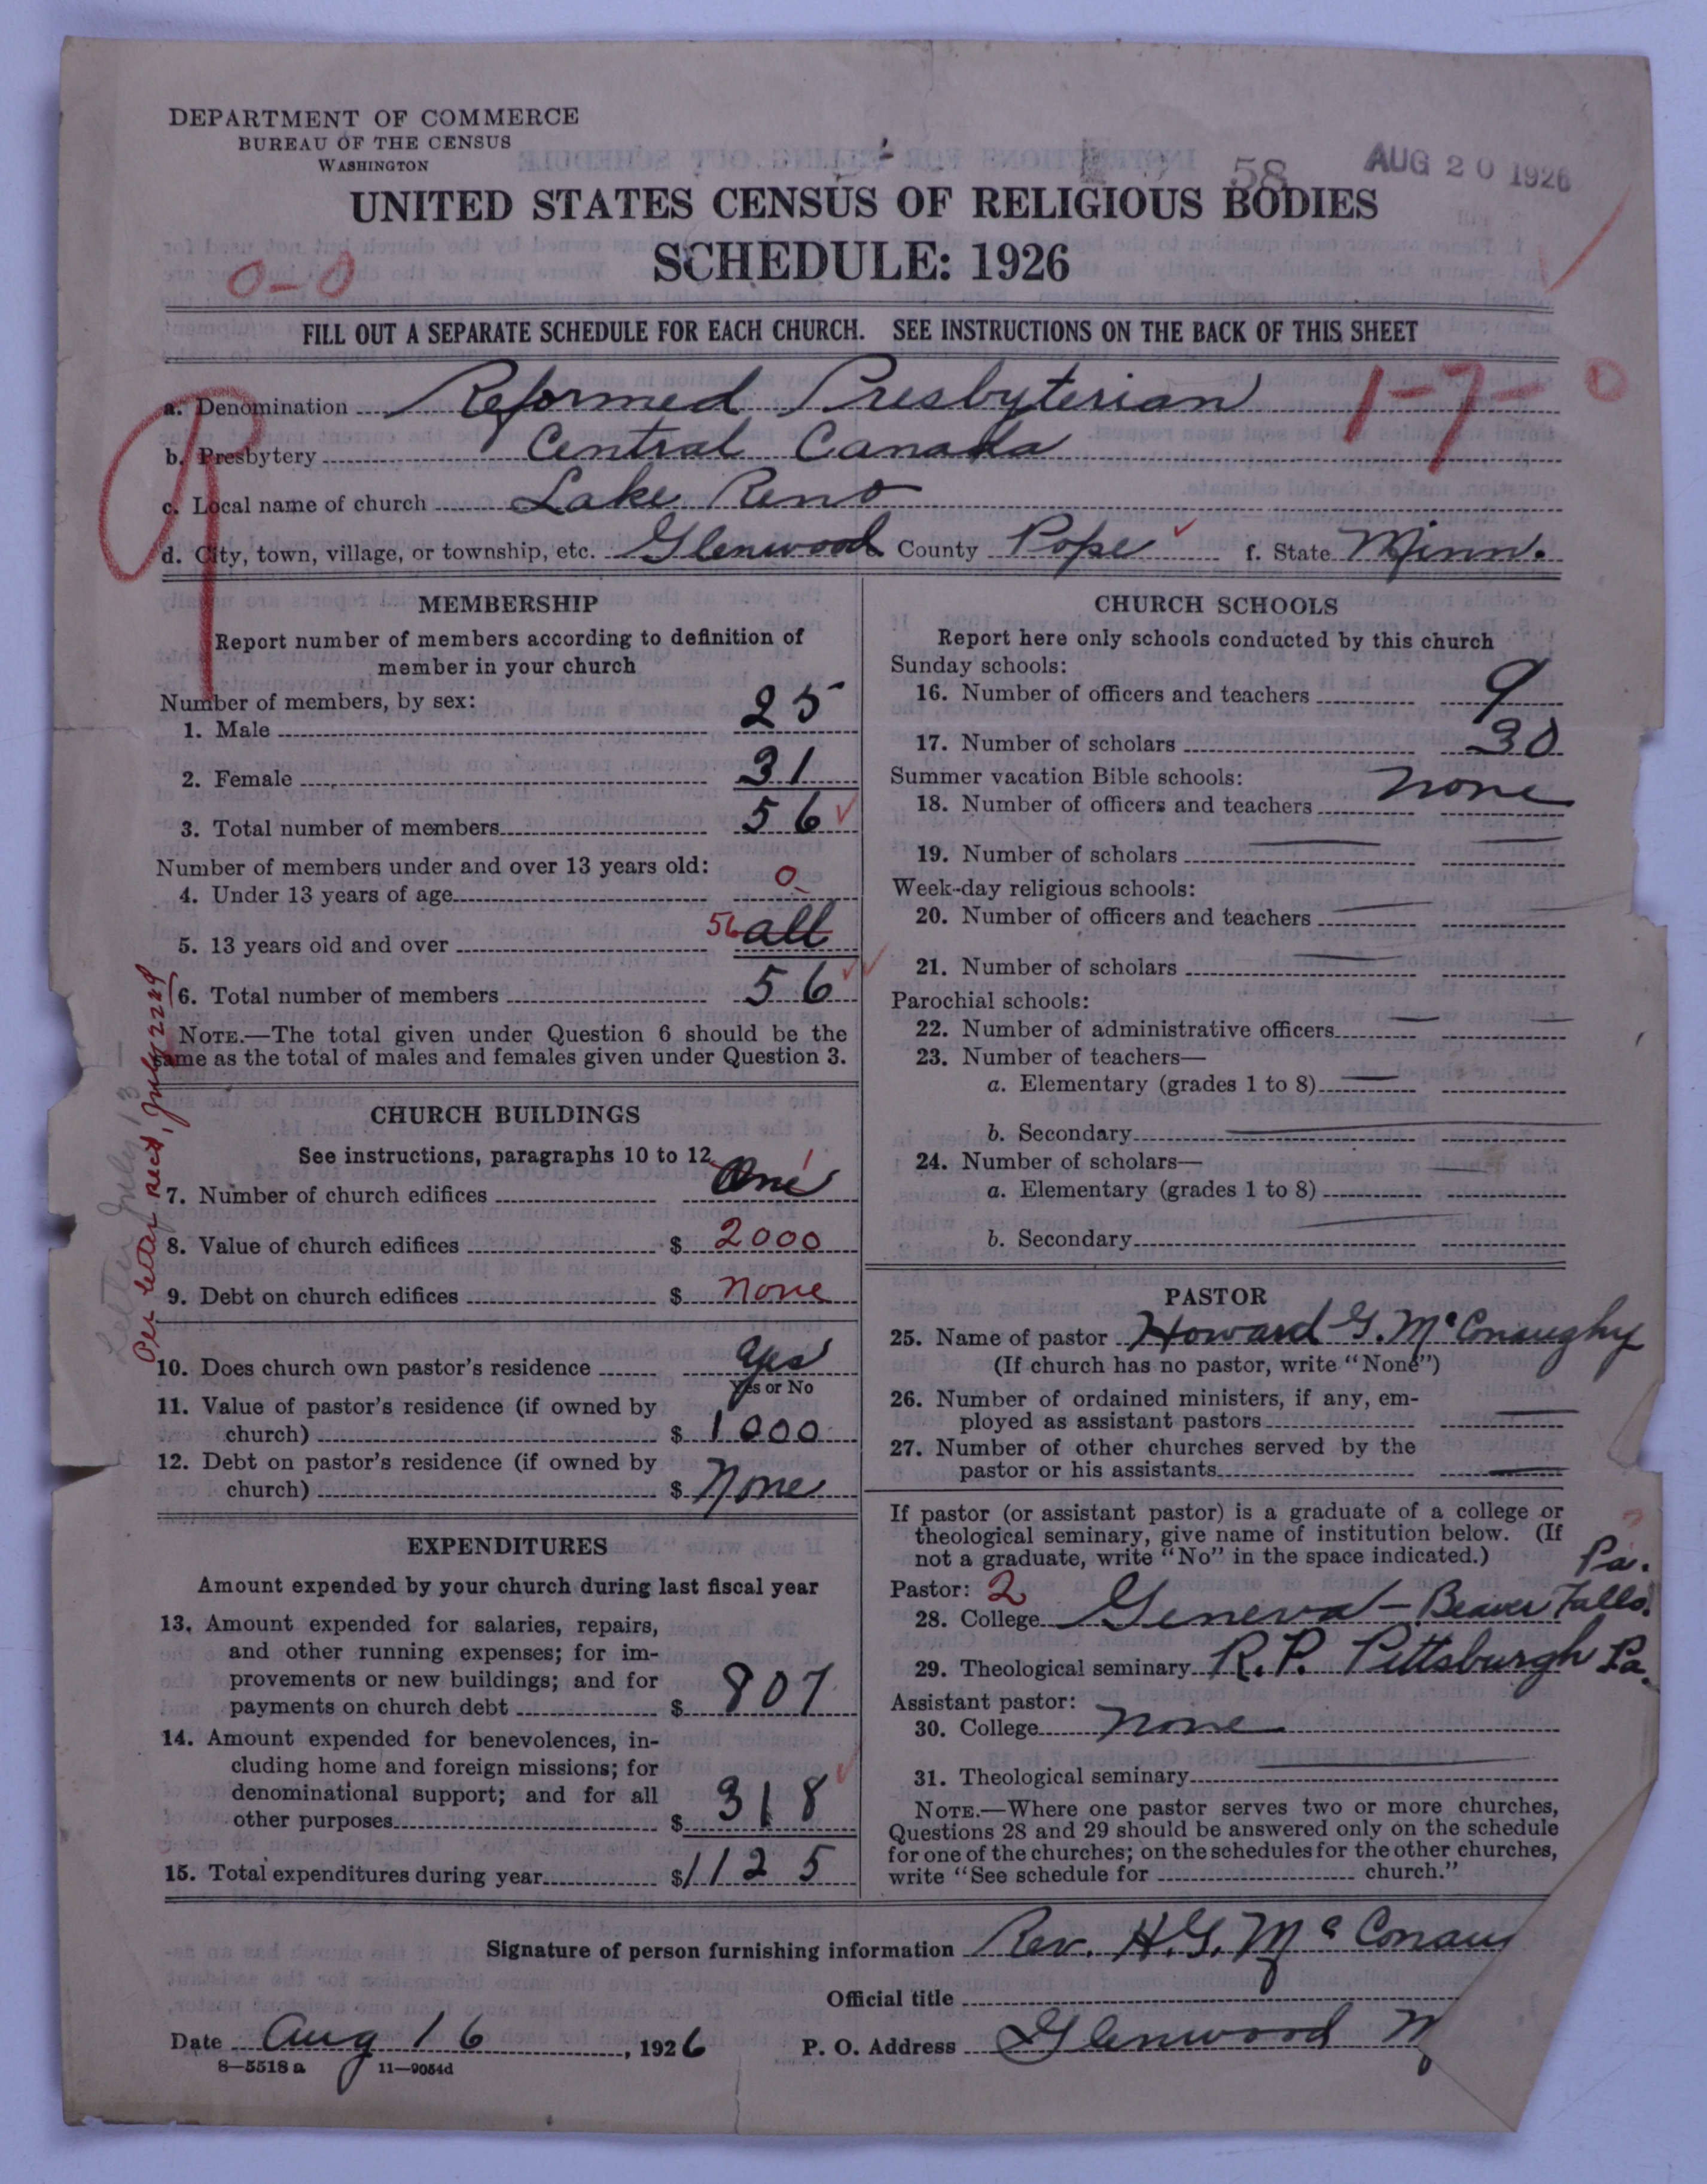 DEPARTMENT OF COMMERCE
BUREAU OF THE CENSUS
WASHINGTON
58 AUG 20 1926
UNITED STATES CENSUS OF RELIGIOUS BODIES
SCHEDULE: 1926
0-0
FILL OUT A SEPARATE SCHEDULE FOR EACH CHURCH. SEE INSTRUCTIONS ON THE BACK OF THIS SHEET
a. Denomination Reformed Presbyterian 1-7-0
b. Presbytery Central Canada
c. Local name of church Lake Reno
d. City, town, village, or township, etc. Glenwood County Pope f. State Minn.
MEMBERSHIP
Report number of members according to definition of
member in your church
Number of members, by sex:
1. Male 25
2. Female 31
3. Total number of members 56
Number of members under and over 13 years old:
4. Under 13 years of age 0
5. 13 years old and over 56 all
6. Total number of members 56
NOTE.—The total given under Question 6 should be the
same as the total of males and females given under Question 3.
Per letter recd, July 2229
Letter July 13
CHURCH BUILDINGS
See instructions, paragraphs 10 to 12
7. Number of church edifices One 1
8. Value of church edifices $ 2000
9. Debt on church edifices $ none
10. Does church own pastor's residence Yes
Yes or No
11. Value of pastor's residence (if owned by
church) $ 1000
12. Debt on pastor's residence (if owned by
church) $ None
EXPENDITURES
Amount expended by your church during last fiscal year
13. Amount expended for salaries, repairs,
and other running expenses; for im-
provements or new buildings; and for
payments on church debt $ 807
14. Amount expended for benevolences, in-
cluding home and foreign missions; for
denominational support; and for all
other purposes $ 318
15. Total expenditures during year $ 1125
CHURCH SCHOOLS
Report here only schools conducted by this church
Sunday schools:
16. Number of officers and teachers 9
17. Number of scholars 30
Summer vacation Bible schools:
18. Number of officers and teachers none
19. Number of scholars
Week-day religious schools:
20. Number of officers and teachers
21. Number of scholars
Parochial schools:
22. Number of administrative officers
23. Number of teachers—
a. Elementary (grades 1 to 8)
b. Secondary
24. Number of scholars—
a. Elementary (grades 1 to 8)
b. Secondary
PASTOR
25. Name of pastor Howard G. McConaughy
(If church has no pastor, write "None")
26. Number of ordained ministers, if any, em-
ployed as assistant pastors
27. Number of other churches served by the
pastor or his assistants
If pastor (or assistant pastor) is a graduate of a college or
theological seminary, give name of institution below. (If
not a graduate, write "No" in the space indicated.)
Pastor: 2 Pa.
28. College Geneva – Beaver Falls.
29. Theological seminary R.P. Pittsburgh Pa.
Assistant pastor:
30. College None
31. Theological seminary
NOTE.—Where one pastor serves two or more churches,
Questions 28 and 29 should be answered only on the schedule
for one of the churches; on the schedules for the other churches,
write "See schedule for church."
Signature of person furnishing information Rev. H.G. McConau
Official title
Date Aug 16, 1926 P. O. Address Glenwood M
8—5518 a 11—9054d